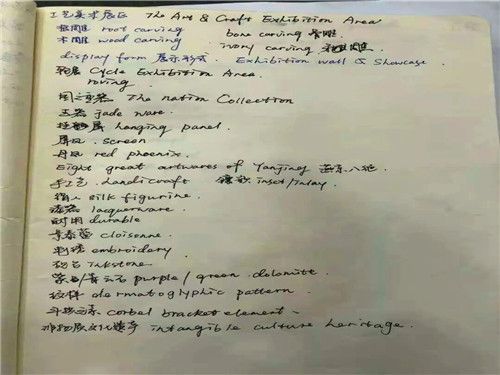 工艺美术展区 The Art & Craft Exhibition Area
根雕 root carving bone carving 骨雕
木雕 wood carving ivory carving 牙雕
display form 展示形式. Exhibition wall & Showcase
轮展 Cycle Exhibition Area
roving
国之重器 The nation Collection
玉器 jade ware.
挂屏 hanging panel.
屏风. screen
丹凤 red phoenix.
Eight great artwares of Yanjing 燕京八绝
手工艺. handicraft 镶嵌 inset/inlay.
绢人 silk figurine.
漆器 laquerware.
耐用 durable
景泰蓝 cloisonne.
刺绣 embroidary.
砚台 inkstone
紫白/青云石 purple/green dolomite
纹样 dermatoglyphic pattern.
斗拱元素 corbel bracket element.
非物质文化遗产 intangible culture heritage.